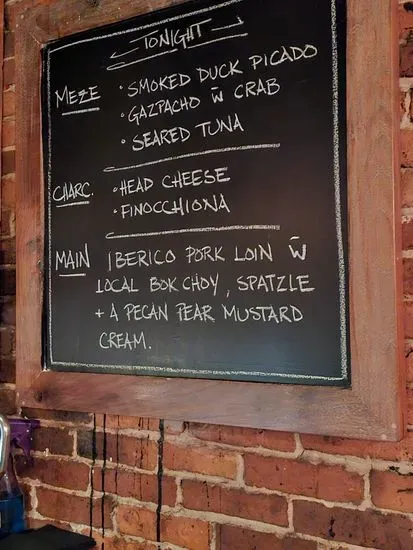 TONIGHT
MEZE
• SMOKED DUCK PICADO
• GAZPACHO w̄ CRAB
• SEARED TUNA
CHARC.
• HEAD CHEESE
• FINOCCHIONA
MAIN
IBERICO PORK LOIN w̄
LOCAL BOK CHOY, SPATZLE
+ A PECAN PEAR MUSTARD
CREAM.